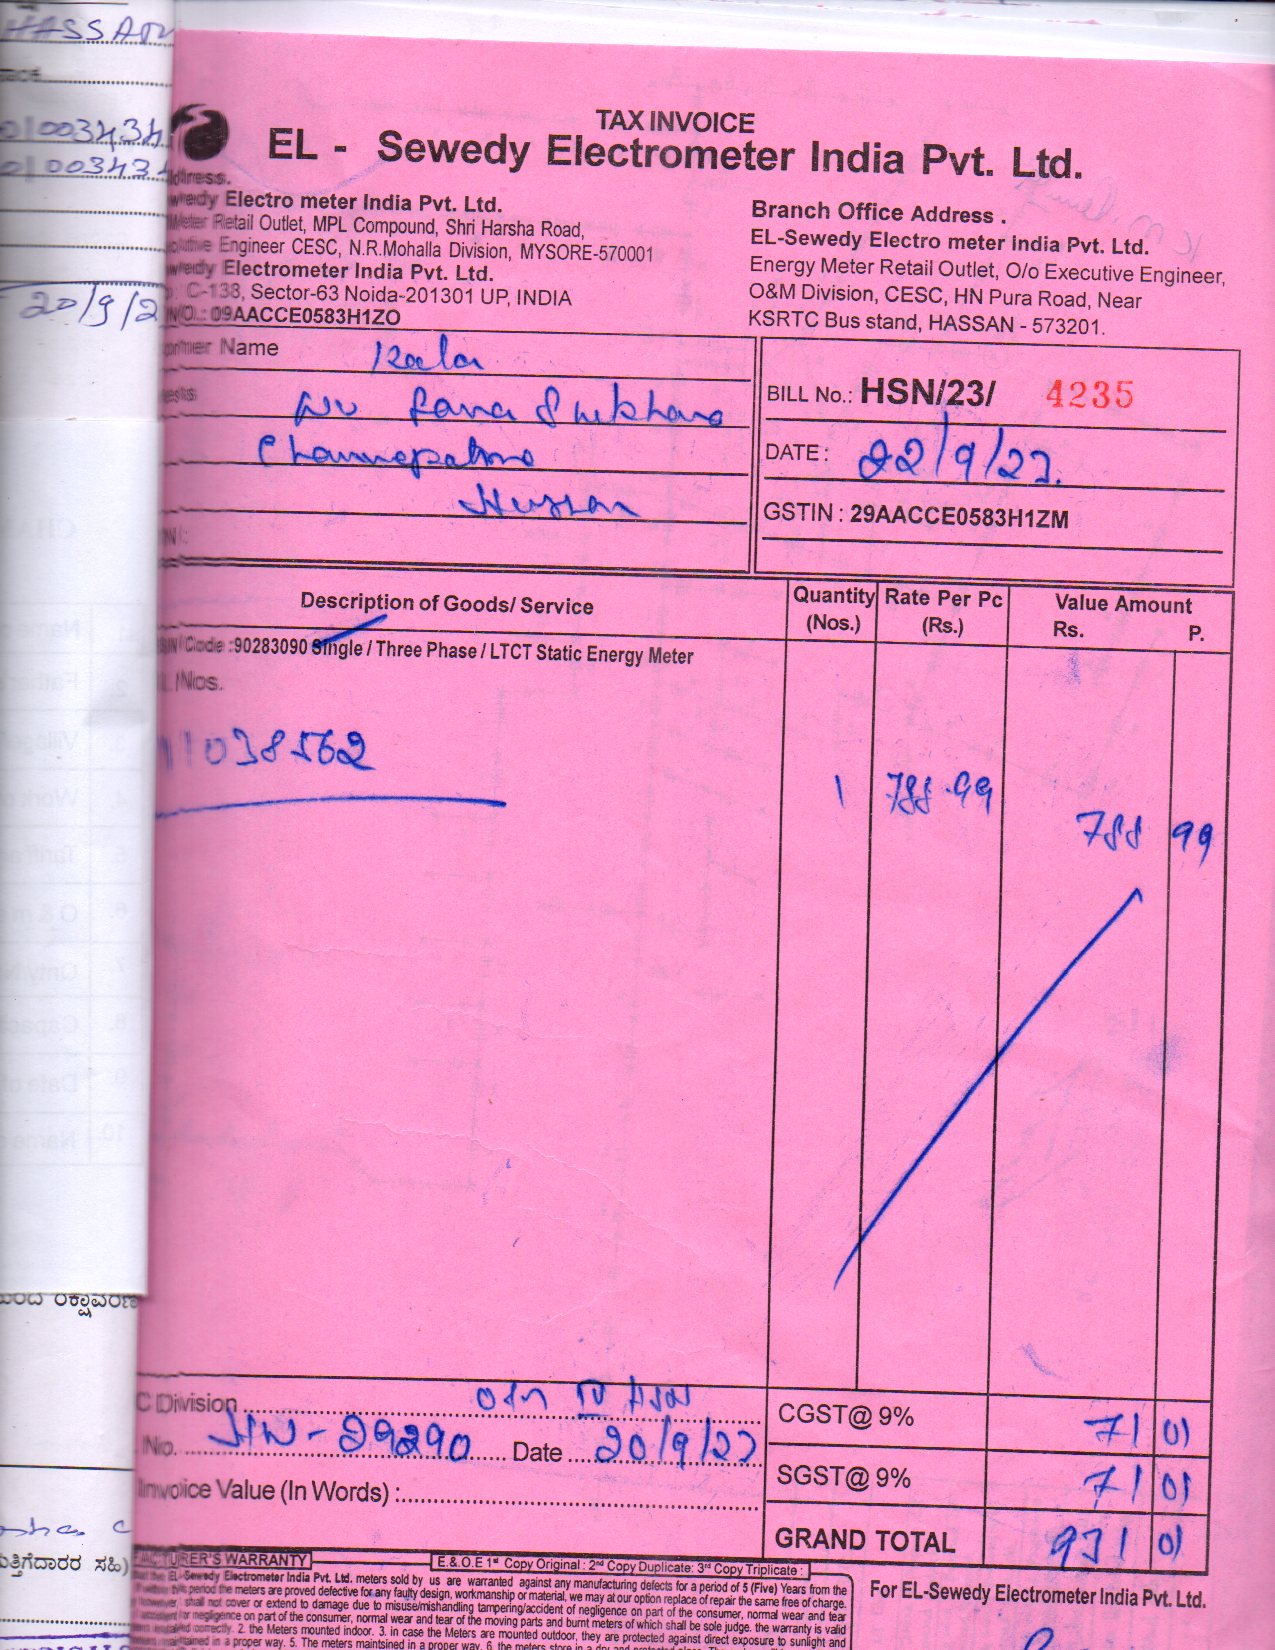 HASSAN
TAX INVOICE
EL - Sewedy Electrometer India Pvt. Ltd.
Electro meter India Pvt. Ltd.
Retail Outlet, MPL Compound, Shri Harsha Road,
Engineer CESC, N.R.Mohalla Division, MYSORE-570001
Electrometer India Pvt. Ltd.
C-138, Sector-63 Noida-201301 UP, INDIA
09AACCE0583H1ZO
Branch Office Address .
EL-Sewedy Electro meter india Pvt. Ltd.
Energy Meter Retail Outlet, O/o Executive Engineer,
O&M Division, CESC, HN Pura Road, Near
KSRTC Bus stand, HASSAN - 573201.
Name
Channapatna
Hassan
BILL No.: HSN/23/ 4235
DATE : 22/9/23.
GSTIN : 29AACCE0583H1ZM
Description of Goods/ Service Quantity (Nos.) Rate Per Pc (Rs.) Value Amount Rs. P.
Code :90283090 Single / Three Phase / LTCT Static Energy Meter
Nos.
11038562
1 788.99 788 99
Division
CGST@ 9% 71 01
No. Date 20/9/23
SGST@ 9% 71 01
Invoice Value (In Words) :
GRAND TOTAL 931 01
FACTURER'S WARRANTY
E.& O.E 1st Copy Original : 2nd Copy Duplicate: 3rd Copy Triplicate :
EL-Sewedy Electrometer India Pvt. Ltd. meters sold by us are warranted against any manufacturing defects for a period of 5 (Five) Years from the
this period the meters are proved defective for any faulty design, workmanship or material, we may at our option replace of repair the same free of charge.
shall not cover or extend to damage due to misuse/mishandling tampering/accident of negligence on part of the consumer, normal wear and tear
or negligence on part of the consumer, normal wear and tear of the moving parts and burnt meters of which shall be sole judge. the warranty is valid
correctly. 2. the Meters mounted indoor. 3. in case the Meters are mounted outdoor, they are protected against direct exposure to sunlight and
in a proper way. 5. The meters maintsined in a proper way. 6. the meters store in a dry and
For EL-Sewedy Electrometer India Pvt. Ltd.